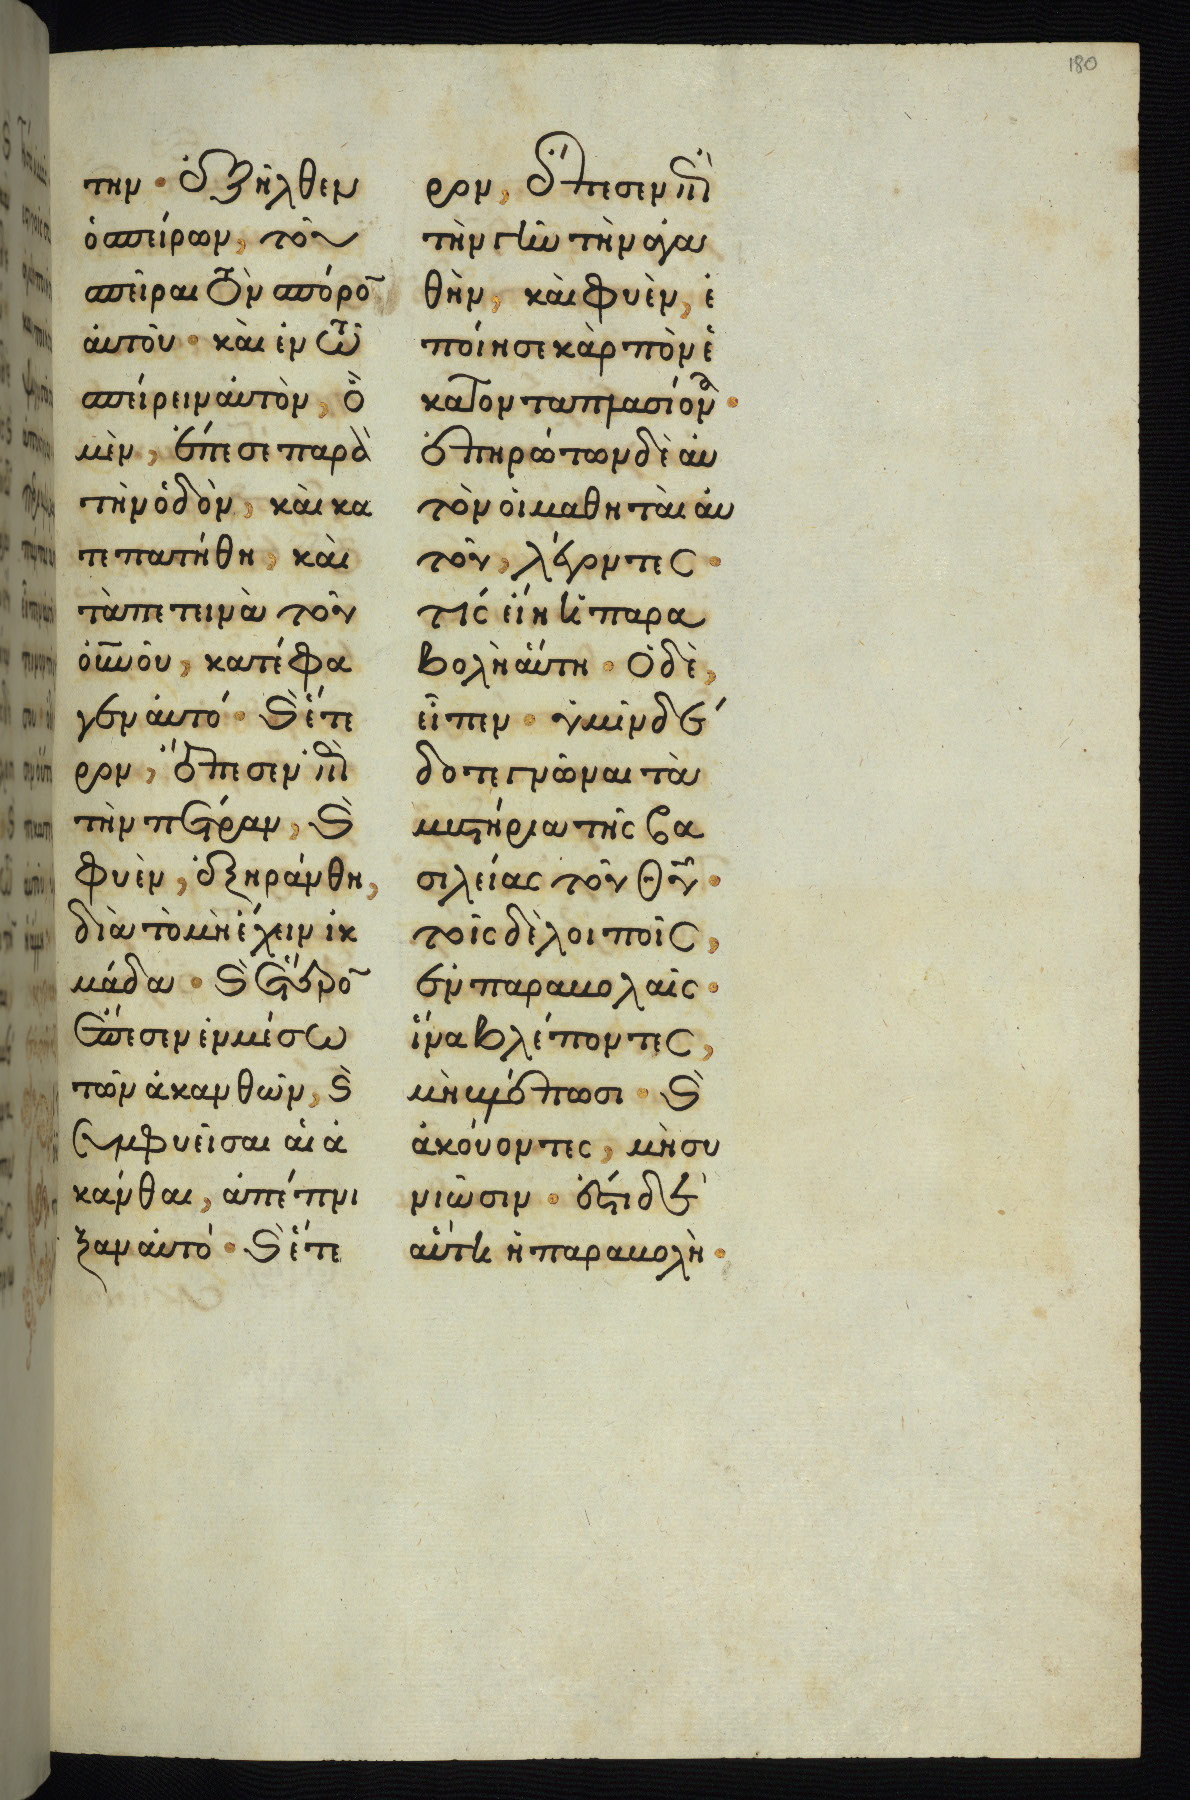 180
την· ἐξῆλθεν
ὁ σπείρων, τοῦ
σπεῖραι τὸν σπόρον
αὐτοῦ· καὶ ἐν τῶ
σπείρειν αὐτὸν, ὃ
μὲν, ἔπεσε παρὰ
τὴν ὁδὸν, καὶ κα
τεπατήθη, καὶ
τὰ πετεινὰ τοῦ
οὐνοῦ, κατέφα
γεν αὐτό· καὶ ἕτε
ρον, ἔπεσεν ἐπὶ
τὴν πέτραν, καὶ
φυὲν, ἐξηράνθη,
διὰ τὸ μὴ ἔχειν ἰκ
μάδα· καὶ ἕτερον
ἔπεσεν ἐν μέσω
τῶν ἀκανθῶν, καὶ
συμφυεῖσαι αἱ ἄ
κανθαι, ἀπέπνι
ξαν αὐτό· καὶ ἕτε
ρον, ἔπεσεν ἐπὶ
τὴν γῆν τὴν ἀγα
θὴν, καὶ φυὲν, ἐ
ποίησε καρπὸν ἑ
κατονταπλασίονα·
ἐπηρώτων δὲ αὐ
τὸν οἱ μαθηταὶ αὐ
τοῦ, λέγοντες·
τίς εἴη ἡ παρα
βολὴ αὕτη· ὁ δὲ,
εἶπεν· ὑμῖν δέ
δοται γνῶναι τὰ
μυστήρια τῆς βα
σιλείας τοῦ θῦ·
τοῖς δὲ λοιποῖς,
ἐν παραβολαῖς·
ἵνα βλέποντες,
μὴ βλέπωσι· καὶ
ἀκούοντες, μὴ συ
νιῶσιν· ἔστι δὲ
αὕτη ἡ παραβολὴ·